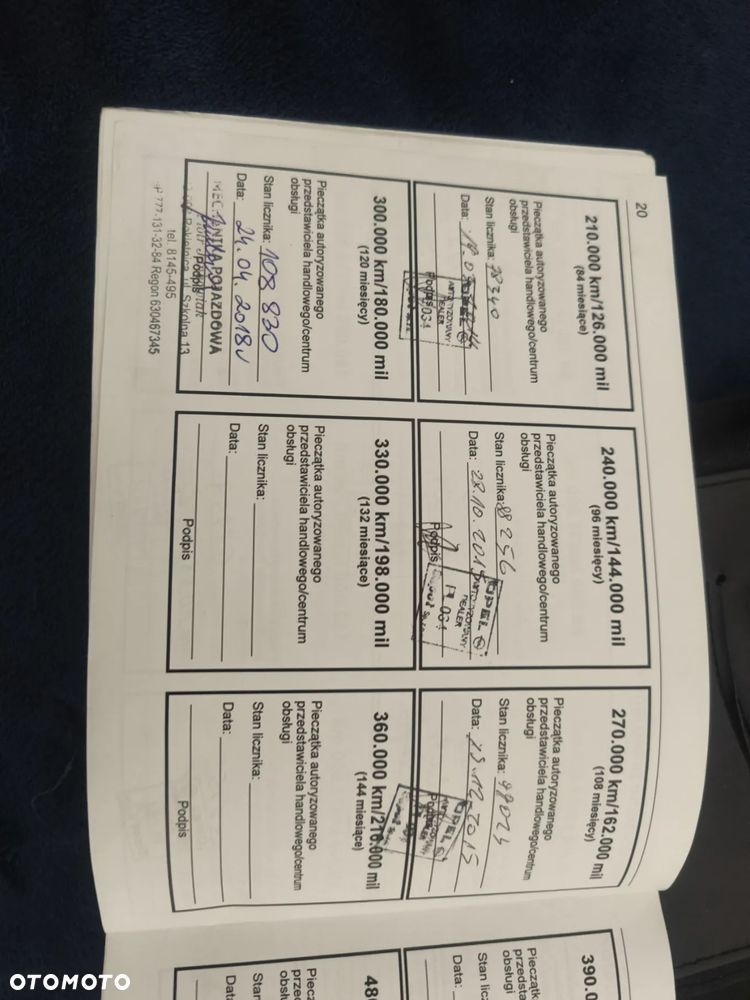 20
210.000 km/126.000 mil
(84 miesiące)
Pieczątka autoryzowanego
przedstawiciela handlowego/centrum
obsługi
Stan licznika: 78340
Data:
AUTORYZOWANY
DEALER
Podpis
240.000 km/144.000 mil
(96 miesięcy)
Pieczątka autoryzowanego
przedstawiciela handlowego/centrum
obsługi
Stan licznika: 88256
Data: 28.10.201
OPEL
AUTORYZOWANY
DEALER
Podpis
270.000 km/162.000 mil
(108 miesięcy)
Pieczątka autoryzowanego
przedstawiciela handlowego/centrum
obsługi
Stan licznika:
Data: 12.2015
OPEL
Podpis
300.000 km/180.000 mil
(120 miesięcy)
Pieczątka autoryzowanego
przedstawiciela handlowego/centrum
obsługi
Stan licznika: 108 830
Data: 24.04.2018
MECHANIKA POJAZDOWA
Podpis
Rokietnica, ul. Szkolna 13
tel. 8145-495
777-131-32-84 Regon 630467345
330.000 km/198.000 mil
(132 miesiące)
Pieczątka autoryzowanego
przedstawiciela handlowego/centrum
obsługi
Stan licznika:
Data:
Podpis
360.000 km/216.000 mil
(144 miesiące)
Pieczątka autoryzowanego
przedstawiciela handlowego/centrum
obsługi
Stan licznika:
Data:
Podpis
390.0
Pieczą
przedsta
obsługi
Stan l
Data:
480
Piecz
przed
obsłu
Stan
Data
OTOMOTO